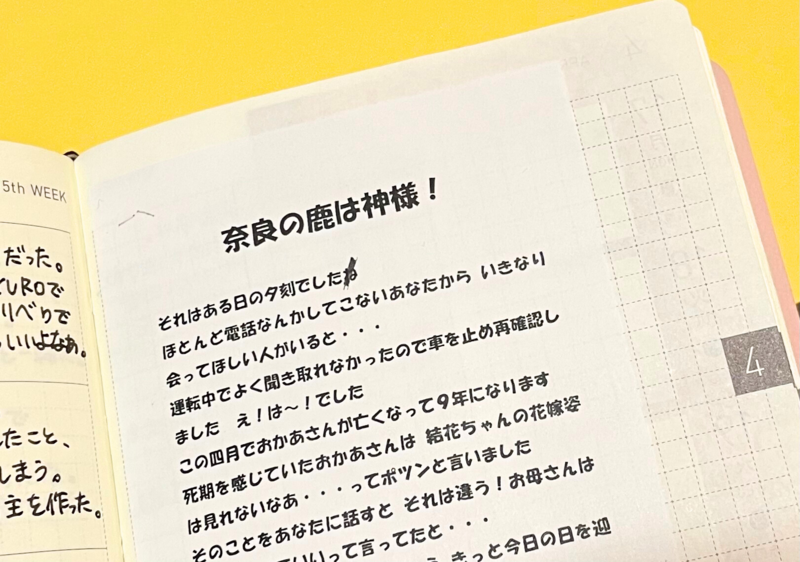 5th WEEK
だった。
EUROで
リベりで
いいよなあ。
たこと、
しまう。
主を作った。
奈良の鹿は神様!
それはある日の夕刻でしたね
ほとんど電話なんかしてこないあなたから いきなり
会ってほしい人がいると・・・
運転中でよく聞き取れなかったので車を止め再確認し
ました え!は〜!でした
この四月でおかあさんが亡くなって9年になります
死期を感じていたおかあさんは 結花ちゃんの花嫁姿
は見れないなあ・・・ってポツンと言いました
そのことをあなたに話すと それは違う!お母さんは
いいって言ってたと・・・
きっと今日の日を迎
4